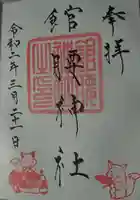 奉拝
館腰神社
令和二年三月二十一日